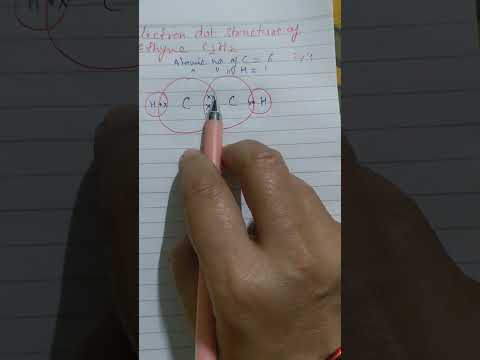 lectron dot structure of
Ethyne C2H2
Atomic no. of C = 6
" " " H = 1
H C C H